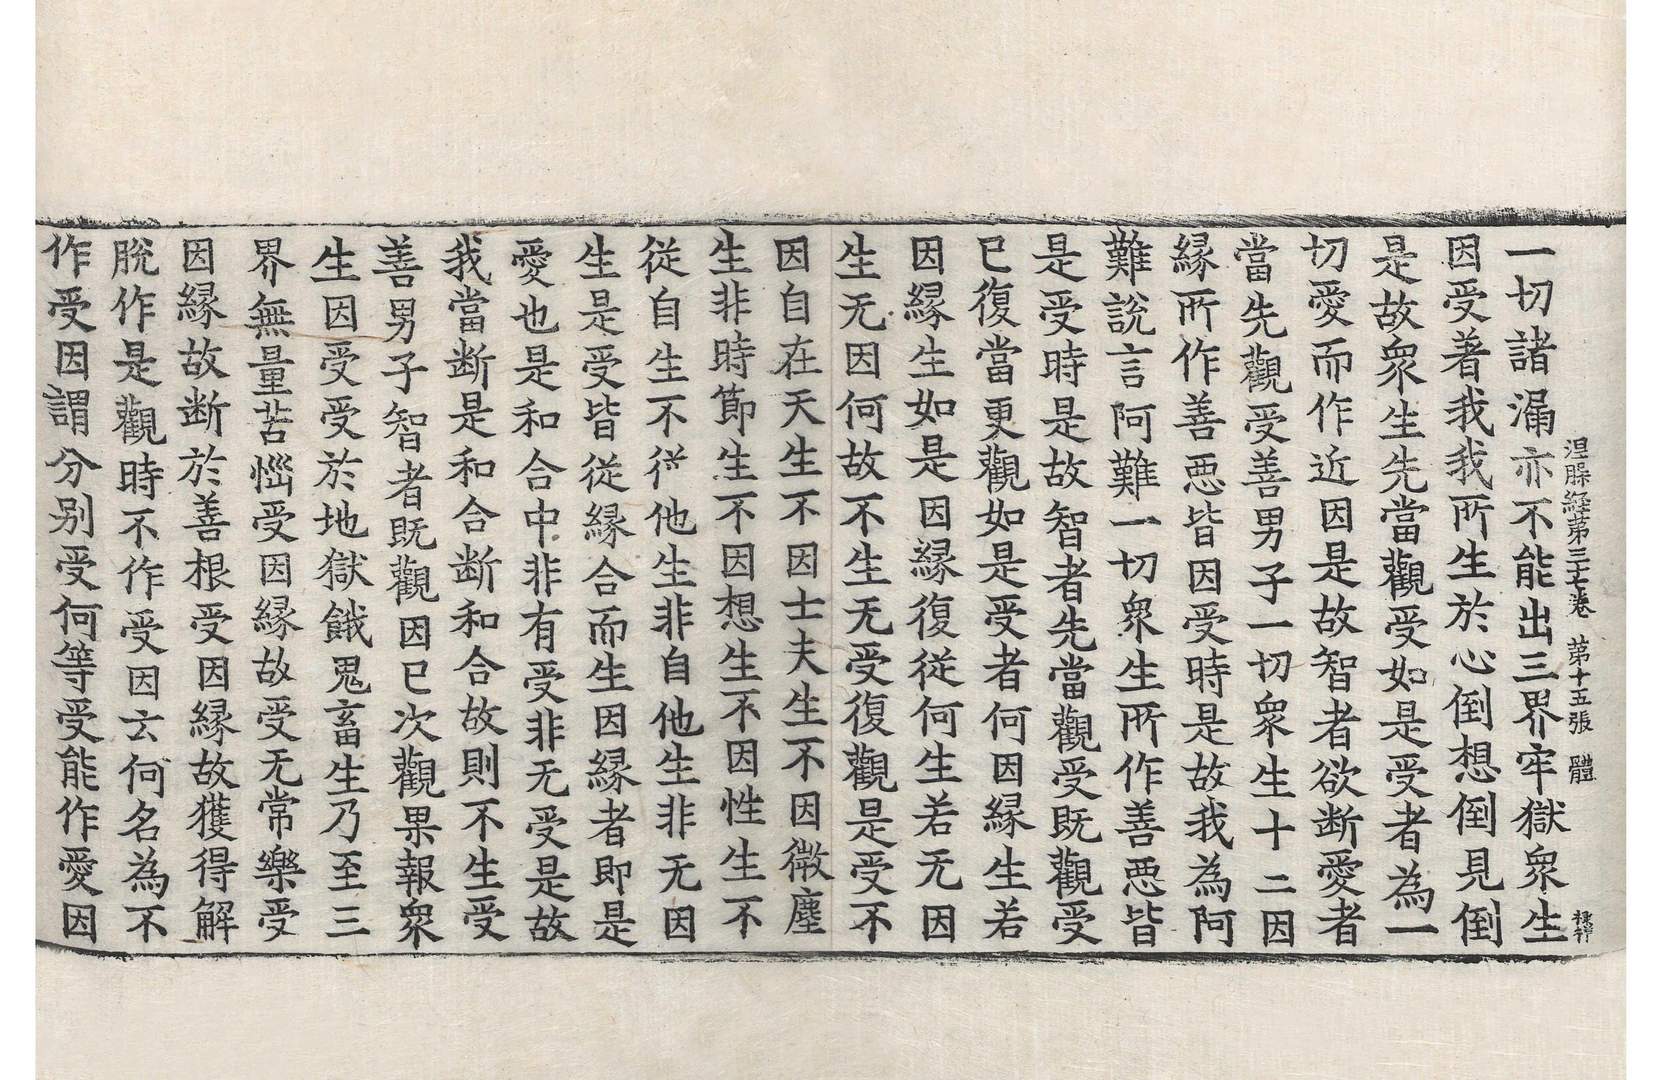 涅槃経第三十七卷 第十五張 體
一切諸漏亦不能出三界牢獄衆生
因受著我我所生於心倒想倒見倒
是故衆生先當觀受如是受者為一
切愛而作近因是故智者欲断愛者
當先觀受善男子一切衆生十二因
縁所作善惡皆因受時是故我為阿
難說言阿難一切衆生所作善惡皆
是受時是故智者先當觀受既觀受
已復當更觀如是受者何因縁生若
因縁生如是因縁復従何生若无因
生无因何故不生无受復觀是受不
因自在天生不因士夫生不因微塵
生非時節生不因想生不因性生不
從自生不從他生非自他生非无因
生是受皆從縁合而生因縁者即是
愛也是和合中非有受非无受是故
我當断是和合断和合故則不生受
善男子智者既觀因已次觀果報衆
生因受受於地獄餓鬼畜生乃至三
界無量苦惱受因縁故受无常樂受
因縁故断於善根受因縁故獲得解
脫作是觀時不作受因云何名為不
作受因謂分别受何等受能作愛因